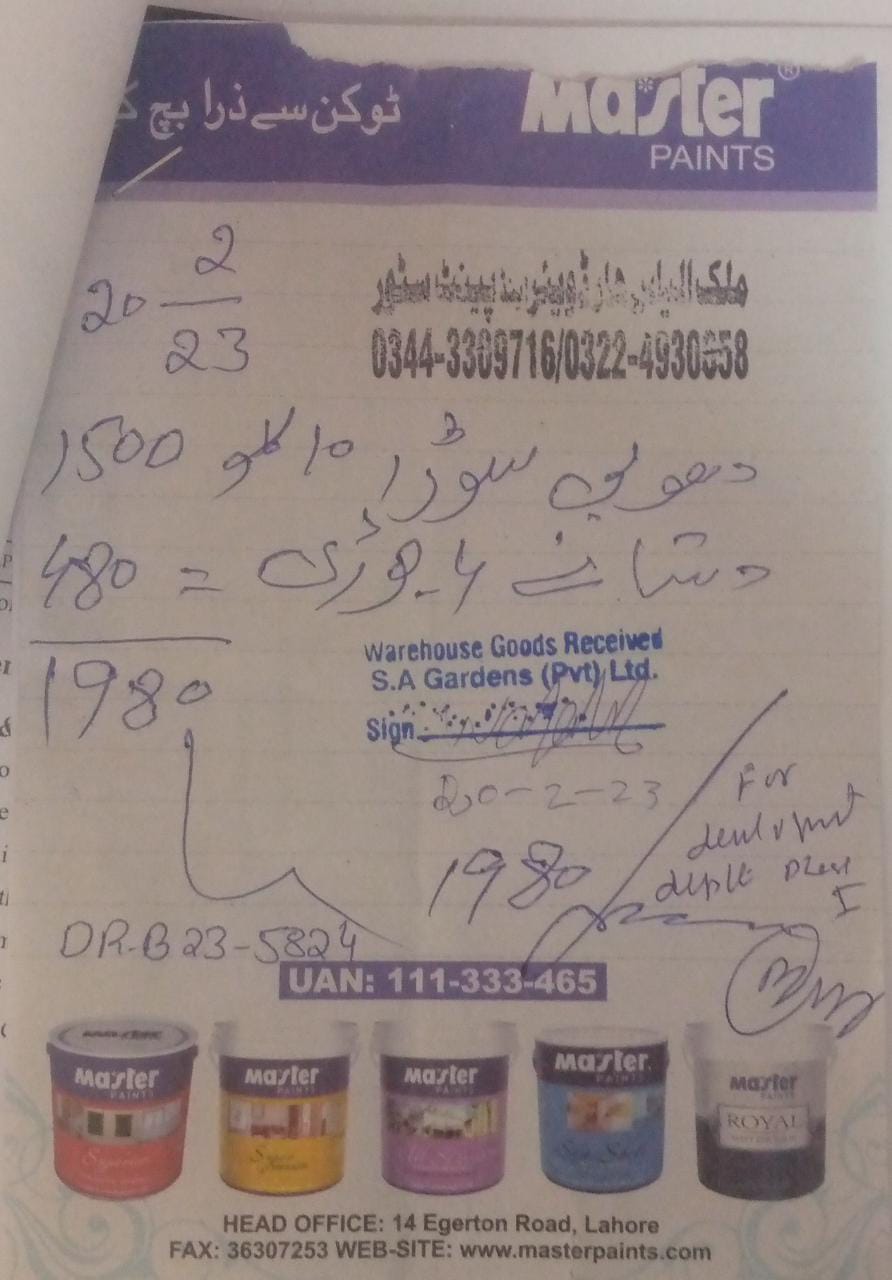 ٹوکن سے ذرا بچ کے
Master®
PAINTS
20 2/23
ملک الیاس ہارڈویئر اینڈ پینٹ سٹور
0344-3309716/0322-4930658
دھوبی سوڈا 10 کلو 1500
دستانے 4 جوڑی = 480
1980
Warehouse Goods Received
S.A Gardens (Pvt) Ltd.
Sign
20-2-23
1980
For
deptt
I
DR-B23-5824
UAN: 111-333-465
Master PAINTS
Master PAINTS
Master PAINTS
Master PAINTS
Master PAINTS
ROYAL
HEAD OFFICE: 14 Egerton Road, Lahore
FAX: 36307253 WEB-SITE: www.masterpaints.com